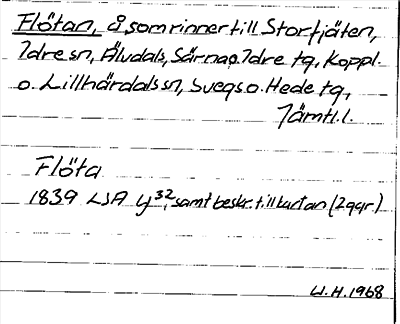 Flötan, å som rinner till Storfjäten,
Idre sn, Älvdals, Särna o. Idre tg, Koppl.
o. Lillhärdals sn, Svegs o. Hede tg,
Jämtl. l.
Flöta
1839 LSA Y 32, samt beskr. till kartan (2 ggr)
W.H. 1968